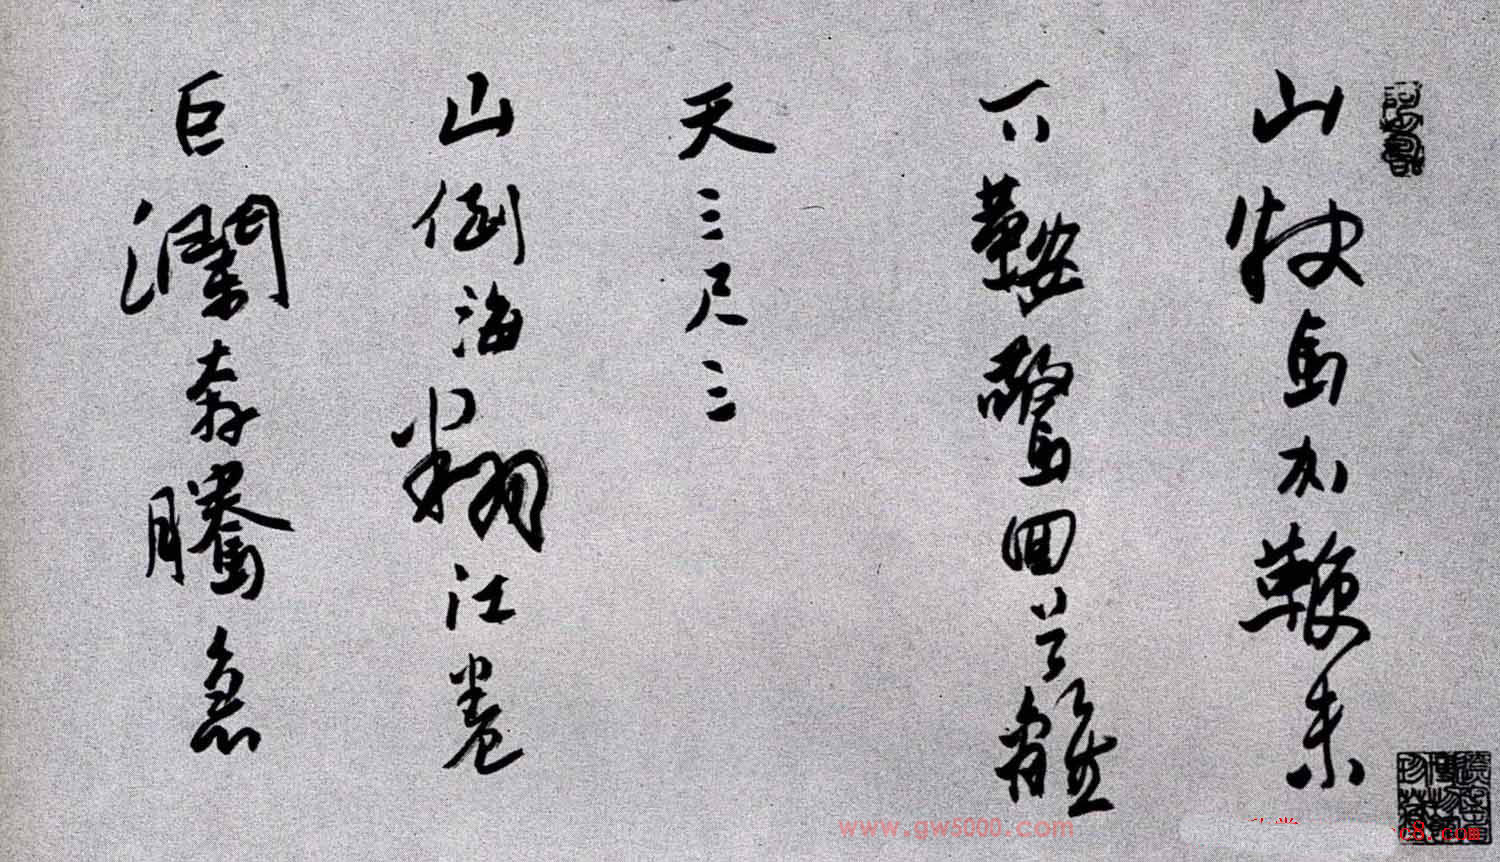 山快馬加鞭未
下鞍驚回首離
天三尺三
山倒海翻江卷
巨瀾奔騰急
www.gw5000.com